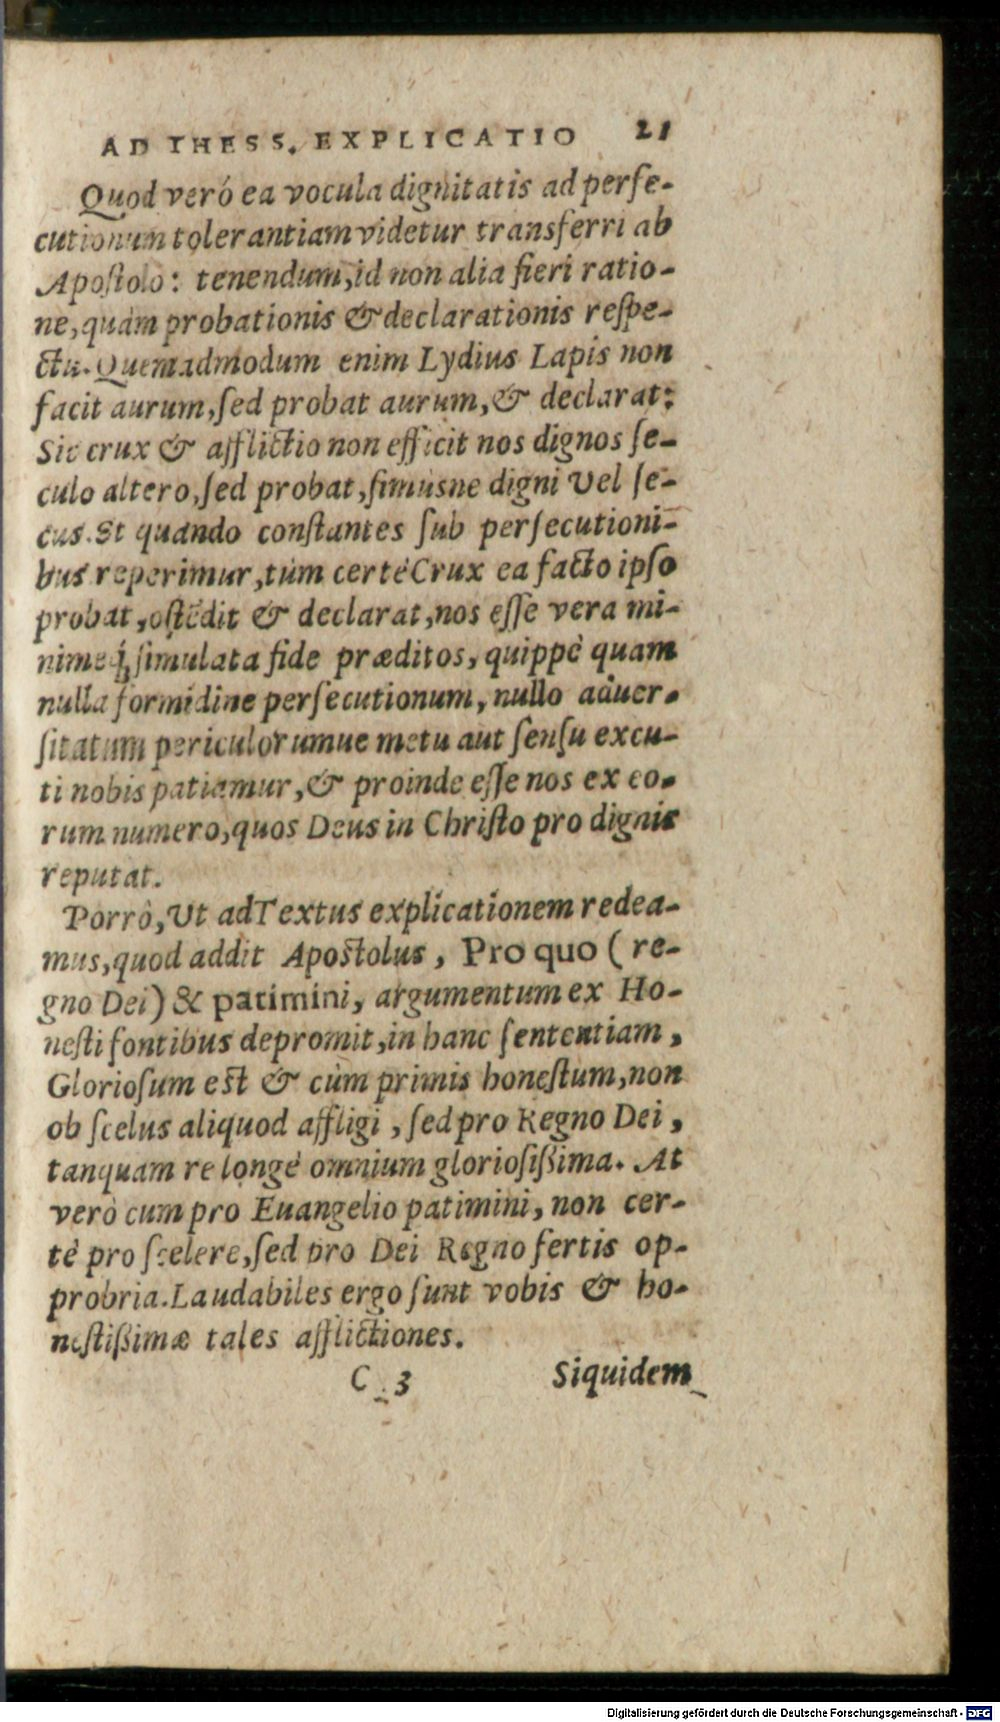 AD THESS. EXPLICATIO 21
Quod verò ea vocula dignitatis ad perſe-
cutionum tolerantiam videtur transferri ab
Apoſtolo: tenendum, id non alia fieri ratio-
ne, quàm probationis & declarationis reſpe-
ctu. Quemadmodum enim Lydius Lapis non
facit aurum, ſed probat aurum, & declarat:
Sic crux & afflictio non efficit nos dignos ſe-
culo altero, ſed probat, ſimúsne digni vel ſe-
cus. Et quando conſtantes ſub perſecutioni-
bus reperimur, tùm certè Crux ea facto ipſo
probat, oſtēdit & declarat, nos eſſe vera mi-
nimeq́; ſimulata fide præditos, quippè quam
nulla formidine perſecutionum, nullo aduer-
ſitatum periculorumue metu aut ſenſu excu-
ti nobis patiamur, & proinde eſſe nos ex eo-
rum numero, quos Deus in Chriſto pro dignis
reputat.
Porrò, Ut ad Textus explicationem redea-
mus, quod addit Apoſtolus, Pro quo (re-
gno Dei) & patimini, argumentum ex Ho-
neſti fontibus depromit, in hanc ſententiam,
Glorioſum eſt & cùm primis honeſtum, non
ob ſcelus aliquod affligi, ſed pro Regno Dei,
tanquam re longè omnium glorioſißima. At
verò cum pro Euangelio patimini, non cer-
tè pro ſcelere, ſed pro Dei Regno fertis op-
probria. Laudabiles ergo ſunt vobis & ho-
neſtißimæ tales afflictiones.
C 3 Siquidem
Digitalisierung gefördert durch die Deutsche Forschungsgemeinschaft - DFG